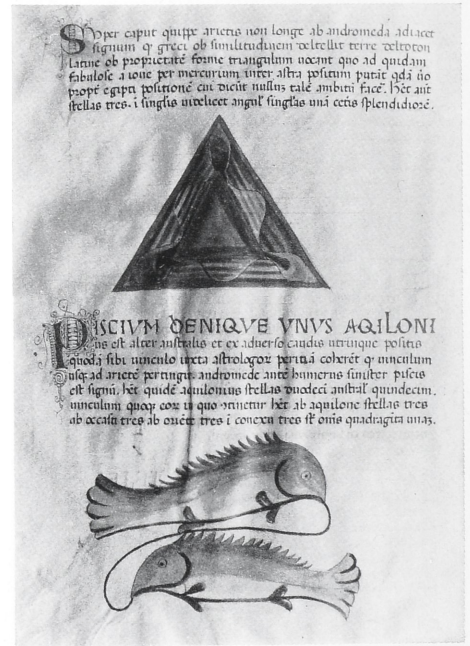 Super caput quippe arietis non longe ab andromeda adiacet
signum q̄ greci ob similitudinem terre deltoton
latine ob proprietatē forme triangulum uocant quo ad quidam
fabulose a ioue per mercurium inter astra positum putāt qdā ūo
propt̄ egipti positionē cui dicūt nullus talē ambitū facē. hēt aut̄
stellas tres. i singlis uidelicet angul' singl'as unā cetis splendidiorē.
PISCIVM DENIQVE VNVS AQILONI
us est alter australis et ex aduerso caudis utrunque positis
quodā sibi uinculo iuxta astrologor peritiā coherēt q̄ uinculum
usq; ad arietē pertingit. andromede autē humerus sinister piscis
est signū. hēt quidē aquilonius stellas duodeci austral' quindecim.
uinculum quoq; eor in quo ɔtinetur hēt ab aquilone stellas tres
ab occasū tres ab oriēte tres i conexu tres st̄ omīs quadragīta